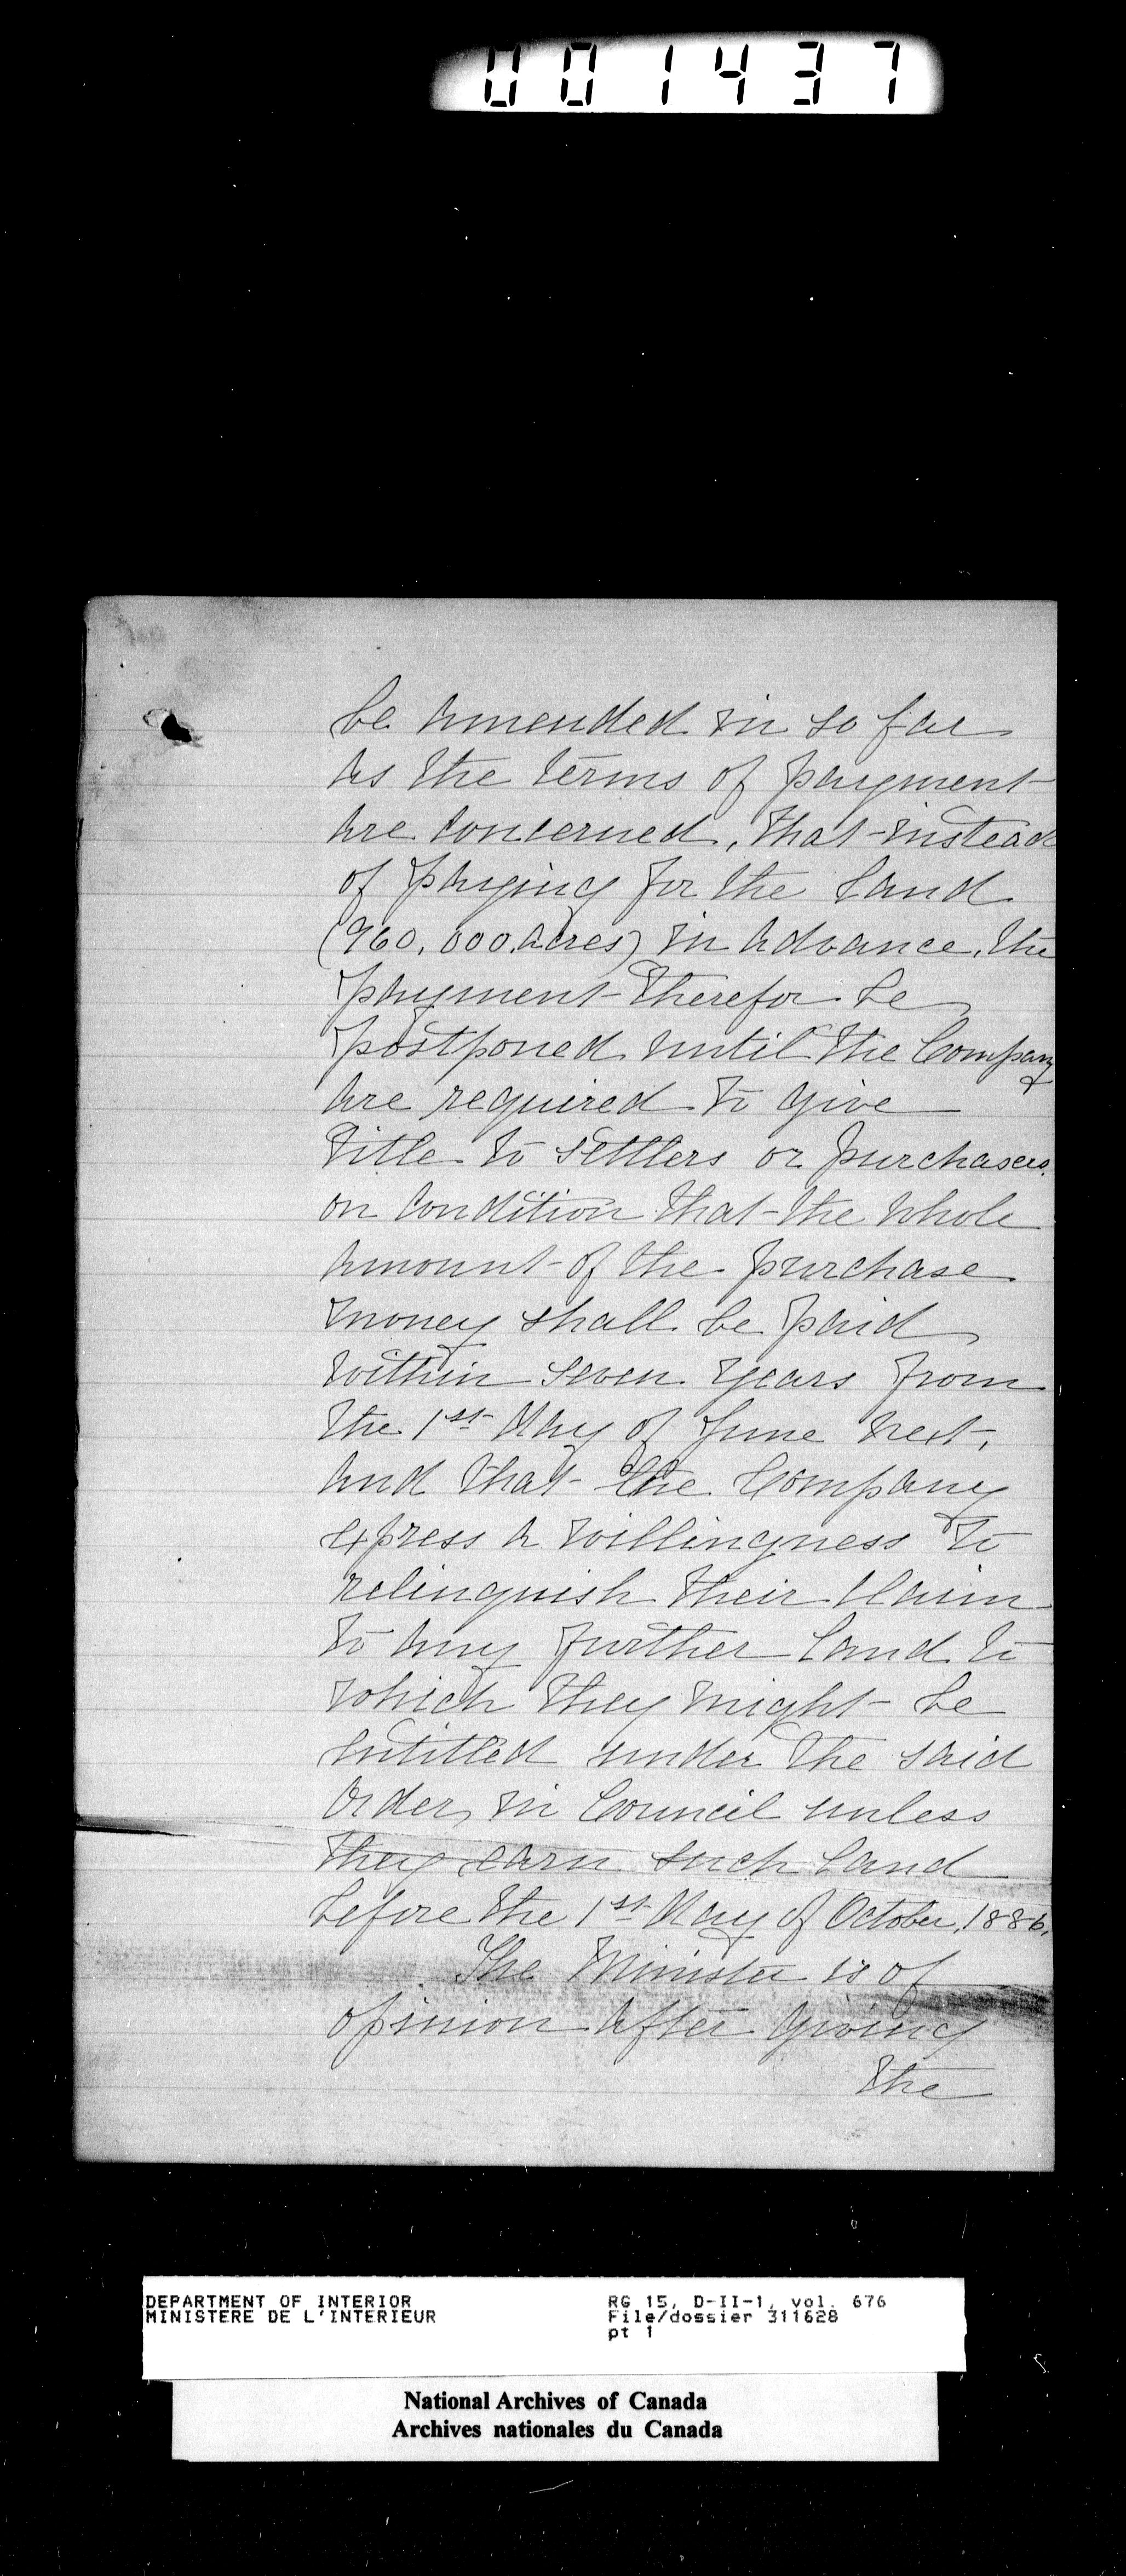 001437
be amended in so far
as the terms of payment
are concerned, that instead
of paying for the land
(960,000 acres) in advance, the
payment therefor be
postponed until the Company
are required to give
title to settlers or purchasers
on condition that the whole
amount of the purchase
money shall be paid
within seven years from
the 1st day of June next,
and that the Company
express a willingness to
relinquish their claim
to any further land to
which they might be
entitled under the said
Order in Council unless
they earn such land
before the 1st day of October, 1886.
The Minister is of
opinion after giving
the
DEPARTMENT OF INTERIOR
MINISTERE DE L'INTERIEUR
RG 15, D-II-1, vol. 676
File/dossier 311628
pt 1
National Archives of Canada
Archives nationales du Canada